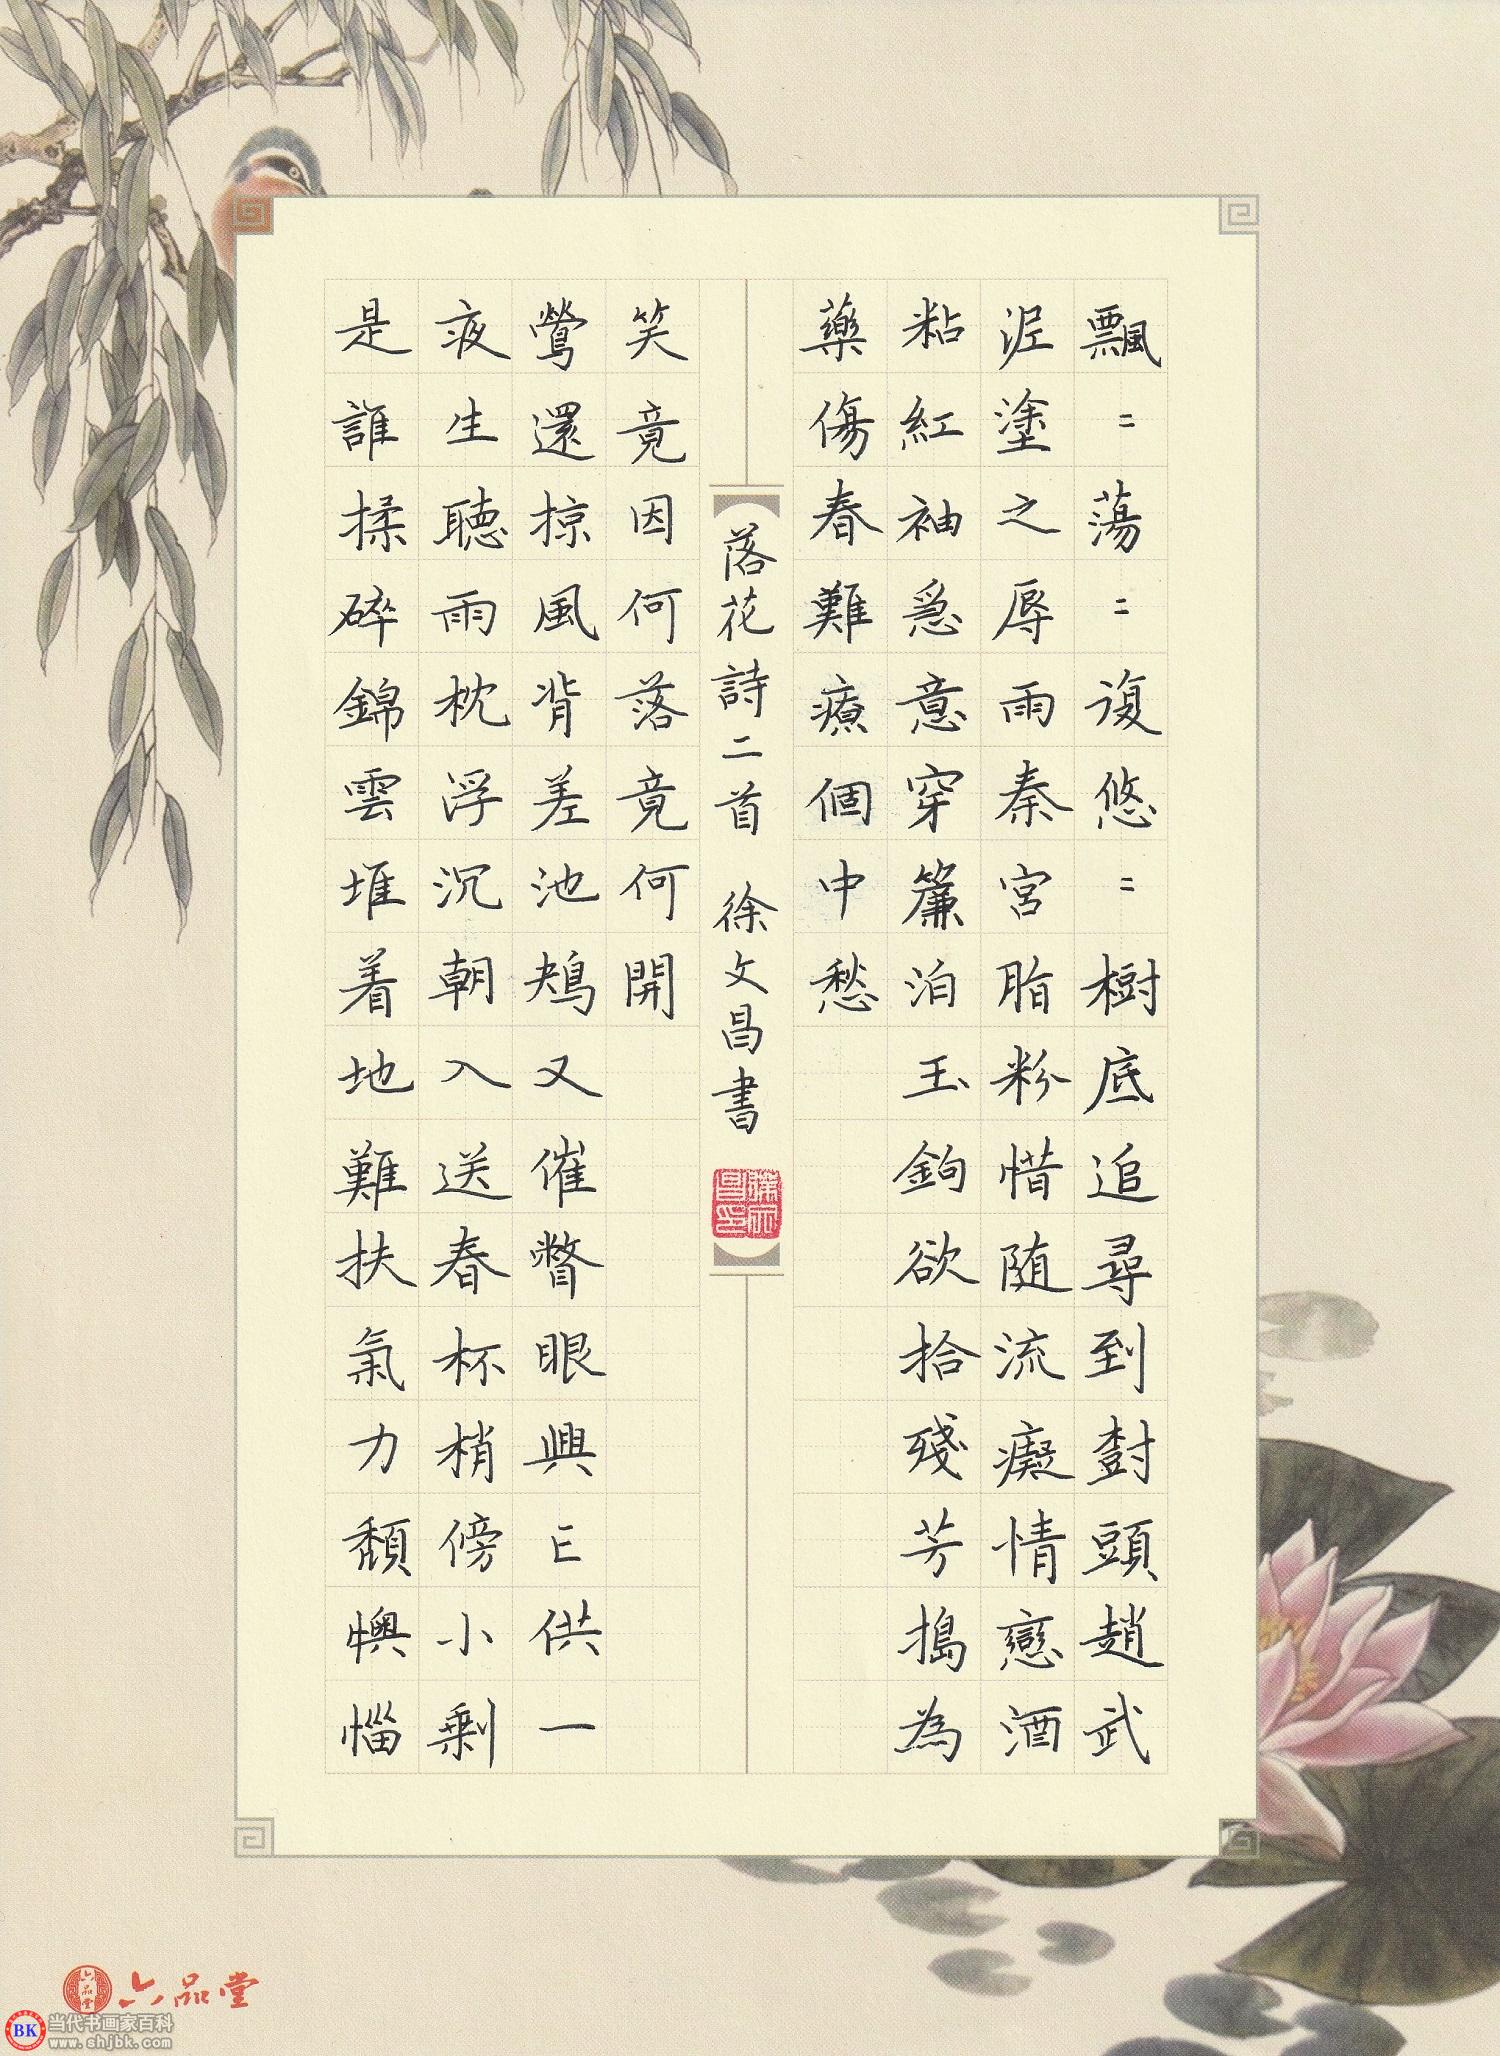 飄〻蕩〻復悠〻樹底追尋到樹頭趙武
泥塗之辱雨秦宮脂粉惜随流癡情戀酒
粘紅袖急意穿簾泊玉鉤欲拾殘芳搗為
藥傷春難療個中愁
是誰揉碎錦雲堆着地難扶氣力頹懊惱
夜生聽雨枕浮沉朝入送春杯梢傍小剩
鶯還掠風背差池鴂又催瞥眼興亡供一
笑竟因何落竟何開
落花詩二首 徐文昌書
徐文昌印
六品堂 六品堂
BK 当代书画家百科
www.shjbk.com